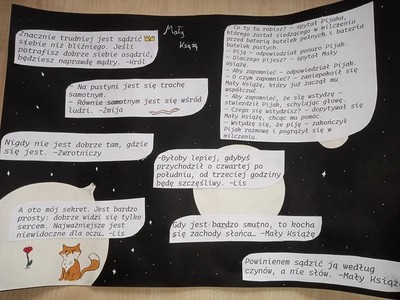 Mały
Książę
Znacznie trudniej jest sądzić
siebie niż bliźniego. Jeśli
potrafisz dobrze siebie osądzić,
będziesz naprawdę mądry. -Król
- Na pustyni jest się trochę
samotnym.
- Równie samotnym jest się wśród
ludzi. -Żmija
- Co ty tu robisz? - spytał Pijaka,
którego zastał siedzącego w milczeniu
przed baterią butelek pełnych i baterią
butelek pustych.
- Piję - odpowiedział ponuro Pijak.
- Dlaczego pijesz? - spytał Mały
Książę.
- Aby zapomnieć - odpowiedział Pijak.
- O czym zapomnieć? - zaniepokoił się
Mały Książę, który już zaczął mu
współczuć.
- Aby zapomnieć, że się wstydzę -
stwierdził Pijak, schylając głowę.
- Czego się wstydzisz? - dopytywał się
Mały Książę, chcąc mu pomóc.
- Wstydzę się, że piję - zakończył
Pijak rozmowę i pogrążył się w
milczeniu.
Nigdy nie jest dobrze tam, gdzie
się jest. -Zwrotniczy
-Byłoby lepiej, gdybyś
przychodził o czwartej po
południu, od trzeciej godziny
będę szczęśliwy. -Lis
A oto mój sekret. Jest bardzo
prosty: dobrze widzi się tylko
sercem. Najważniejsze jest
niewidoczne dla oczu. -Lis
Gdy jest bardzo smutno, to kocha
się zachody słońca… -Mały Książę
Powinienem sądzić ją według
czynów, a nie słów. -Mały Książę